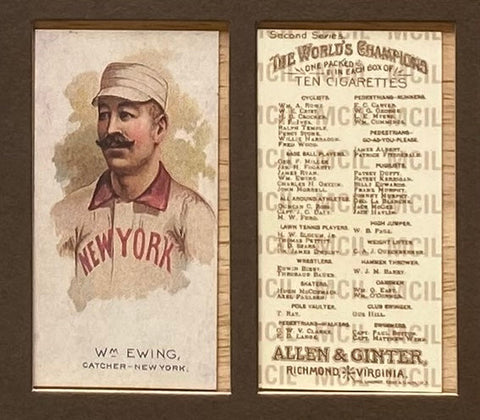 NEW YORK
Wm EWING,
CATCHER-NEW YORK.
Second Series
THE WORLD'S CHAMPIONS
ONE PACKED IN EACH BOX OF
TEN CIGARETTES
CYCLISTS.
Wm A. ROWE.
W. E. CRIST.
RALPH TEMPLE.
PERCY STONE.
WILLIE HARRADON.
FRED WOOD.
BASE BALL PLAYERS.
GEO. F. MILLER.
JAS. H. FOGARTY.
JAMES RYAN.
WM. EWING.
CHARLES H. GETZIN.
JOHN MORRELL.
ALL AROUND ATHLETES.
DUNCAN C. ROSS.
CAPT. J. C. DALY.
M. W. FORD.
LAWN TENNIS PLAYERS.
H. W. SLOCUM, JR.
THOMAS PETTITT.
R. D. SEARS.
DR. JAMES DWIGHT.
WRESTLERS.
EDWIN BIBBY.
THEOBAUD BAUER.
SKATERS.
HUGH McCORMACK.
AXEL PAULSEN.
POLE VAULTER.
T. RAY.
PEDESTRIANS-WALKERS
C. W. V. CLARKE.
E. D. LANGE.
PEDESTRIANS-RUNNERS.
E. C. CARTER.
W. G. GEORGE.
L. E. MYERS.
WM. CUMMINGS.
PEDESTRIANS-
GO-AS-YOU-PLEASE.
JAMES ALBERT.
PATRICK FITZGERALD.
PUGILISTS.
PATSEY DUFFY.
PATSEY KERRIGAN.
BILLY EDWARDS.
FRANK MURPHY.
JOHNNY MURPHY
GEO. LA BLANCHE.
JACK McGEE.
JACK HAVLIN.
HIGH JUMPER.
W. B. PAGE.
WEIGHT LIFTER
C. A. J. QUECKBERNER.
HAMMER THROWER.
W. J. M. BARRY.
OARSMEN
WM. O'CONNOR.
CLUB SWINGER.
GUS HILL.
SWIMMERS.
CAPT. PAUL BOYTON.
CAPT. MATTHEW WEBB.
ALLEN & GINTER,
RICHMOND, VIRGINIA.
MCIL